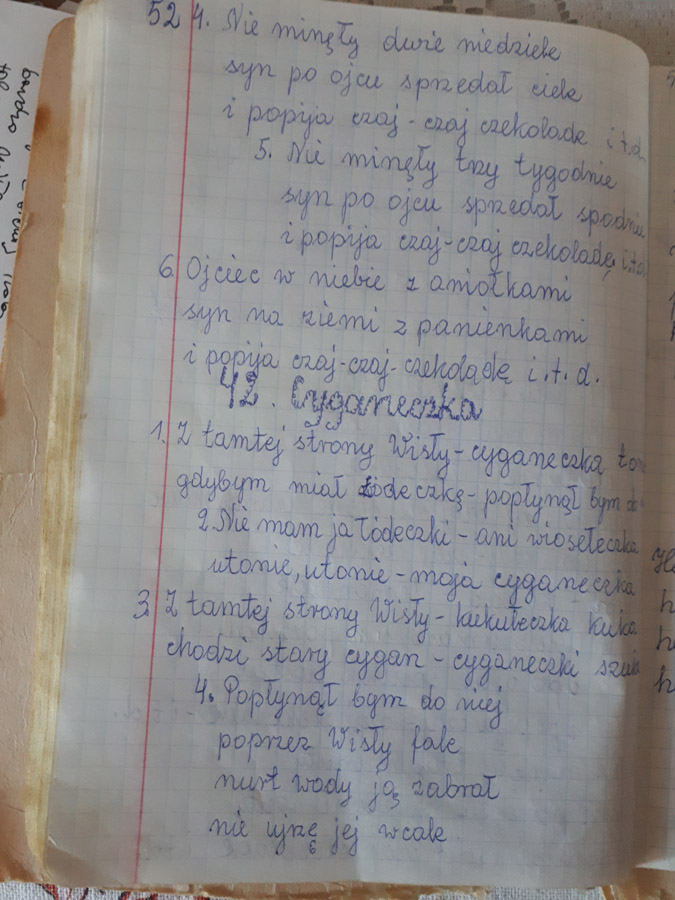 52 4. Nie minęły dwie niedziele
syn po ojcu sprzedał ciele
i popija czaj-czaj czekoladę i.t.d.
5. Nie minęły trzy tygodnie
syn po ojcu sprzedał spodnie
i popija czaj-czaj czekoladę, i.t.d
6. Ojciec w niebie z aniołkami
syn na ziemi z panienkami
i popija czaj-czaj-czekoladę i.t.d.
42. Cyganeczka
1. Z tamtej strony Wisły-cyganeczka to
gdybym miał łódeczkę-popłynął bym
2. Nie mam ja łódeczki-ani wiosełeczka
utonie, utonie-moja cyganeczka
3. Z tamtej strony Wisły-kukułeczka kuka
chodzi stary cygan-cyganeczki szuk
4. Popłynął bym do niej
poprzez Wisły fale
nurt wody ją zabrał
nie ujrzę jej wcale
6